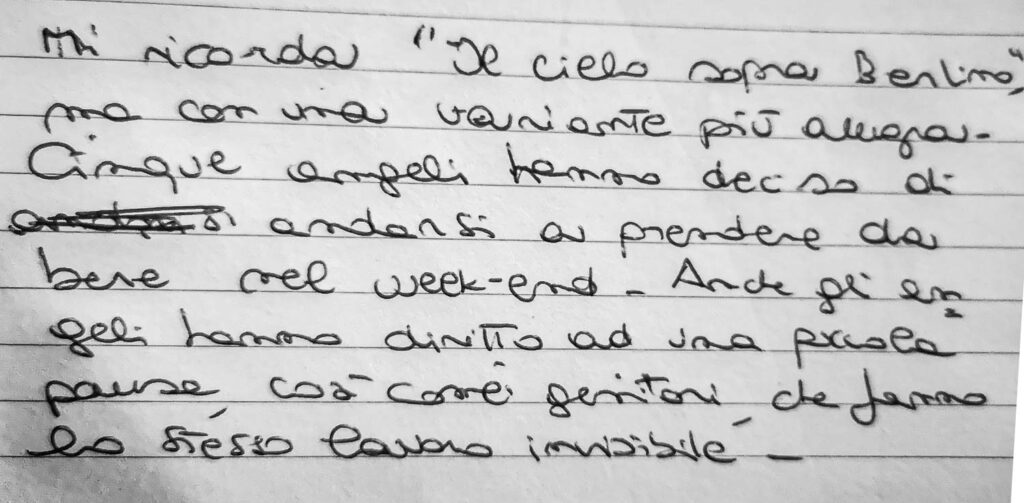 Mi ricorda "Il cielo sopra Berlino",
ma con una variante più allegra.
Cinque angeli hanno deciso di
andarsi a prendere da
bere nel week-end. Anche gli an=
geli hanno diritto ad una piccola
pausa, così come i genitori, che fanno
lo stesso lavoro invisibile.